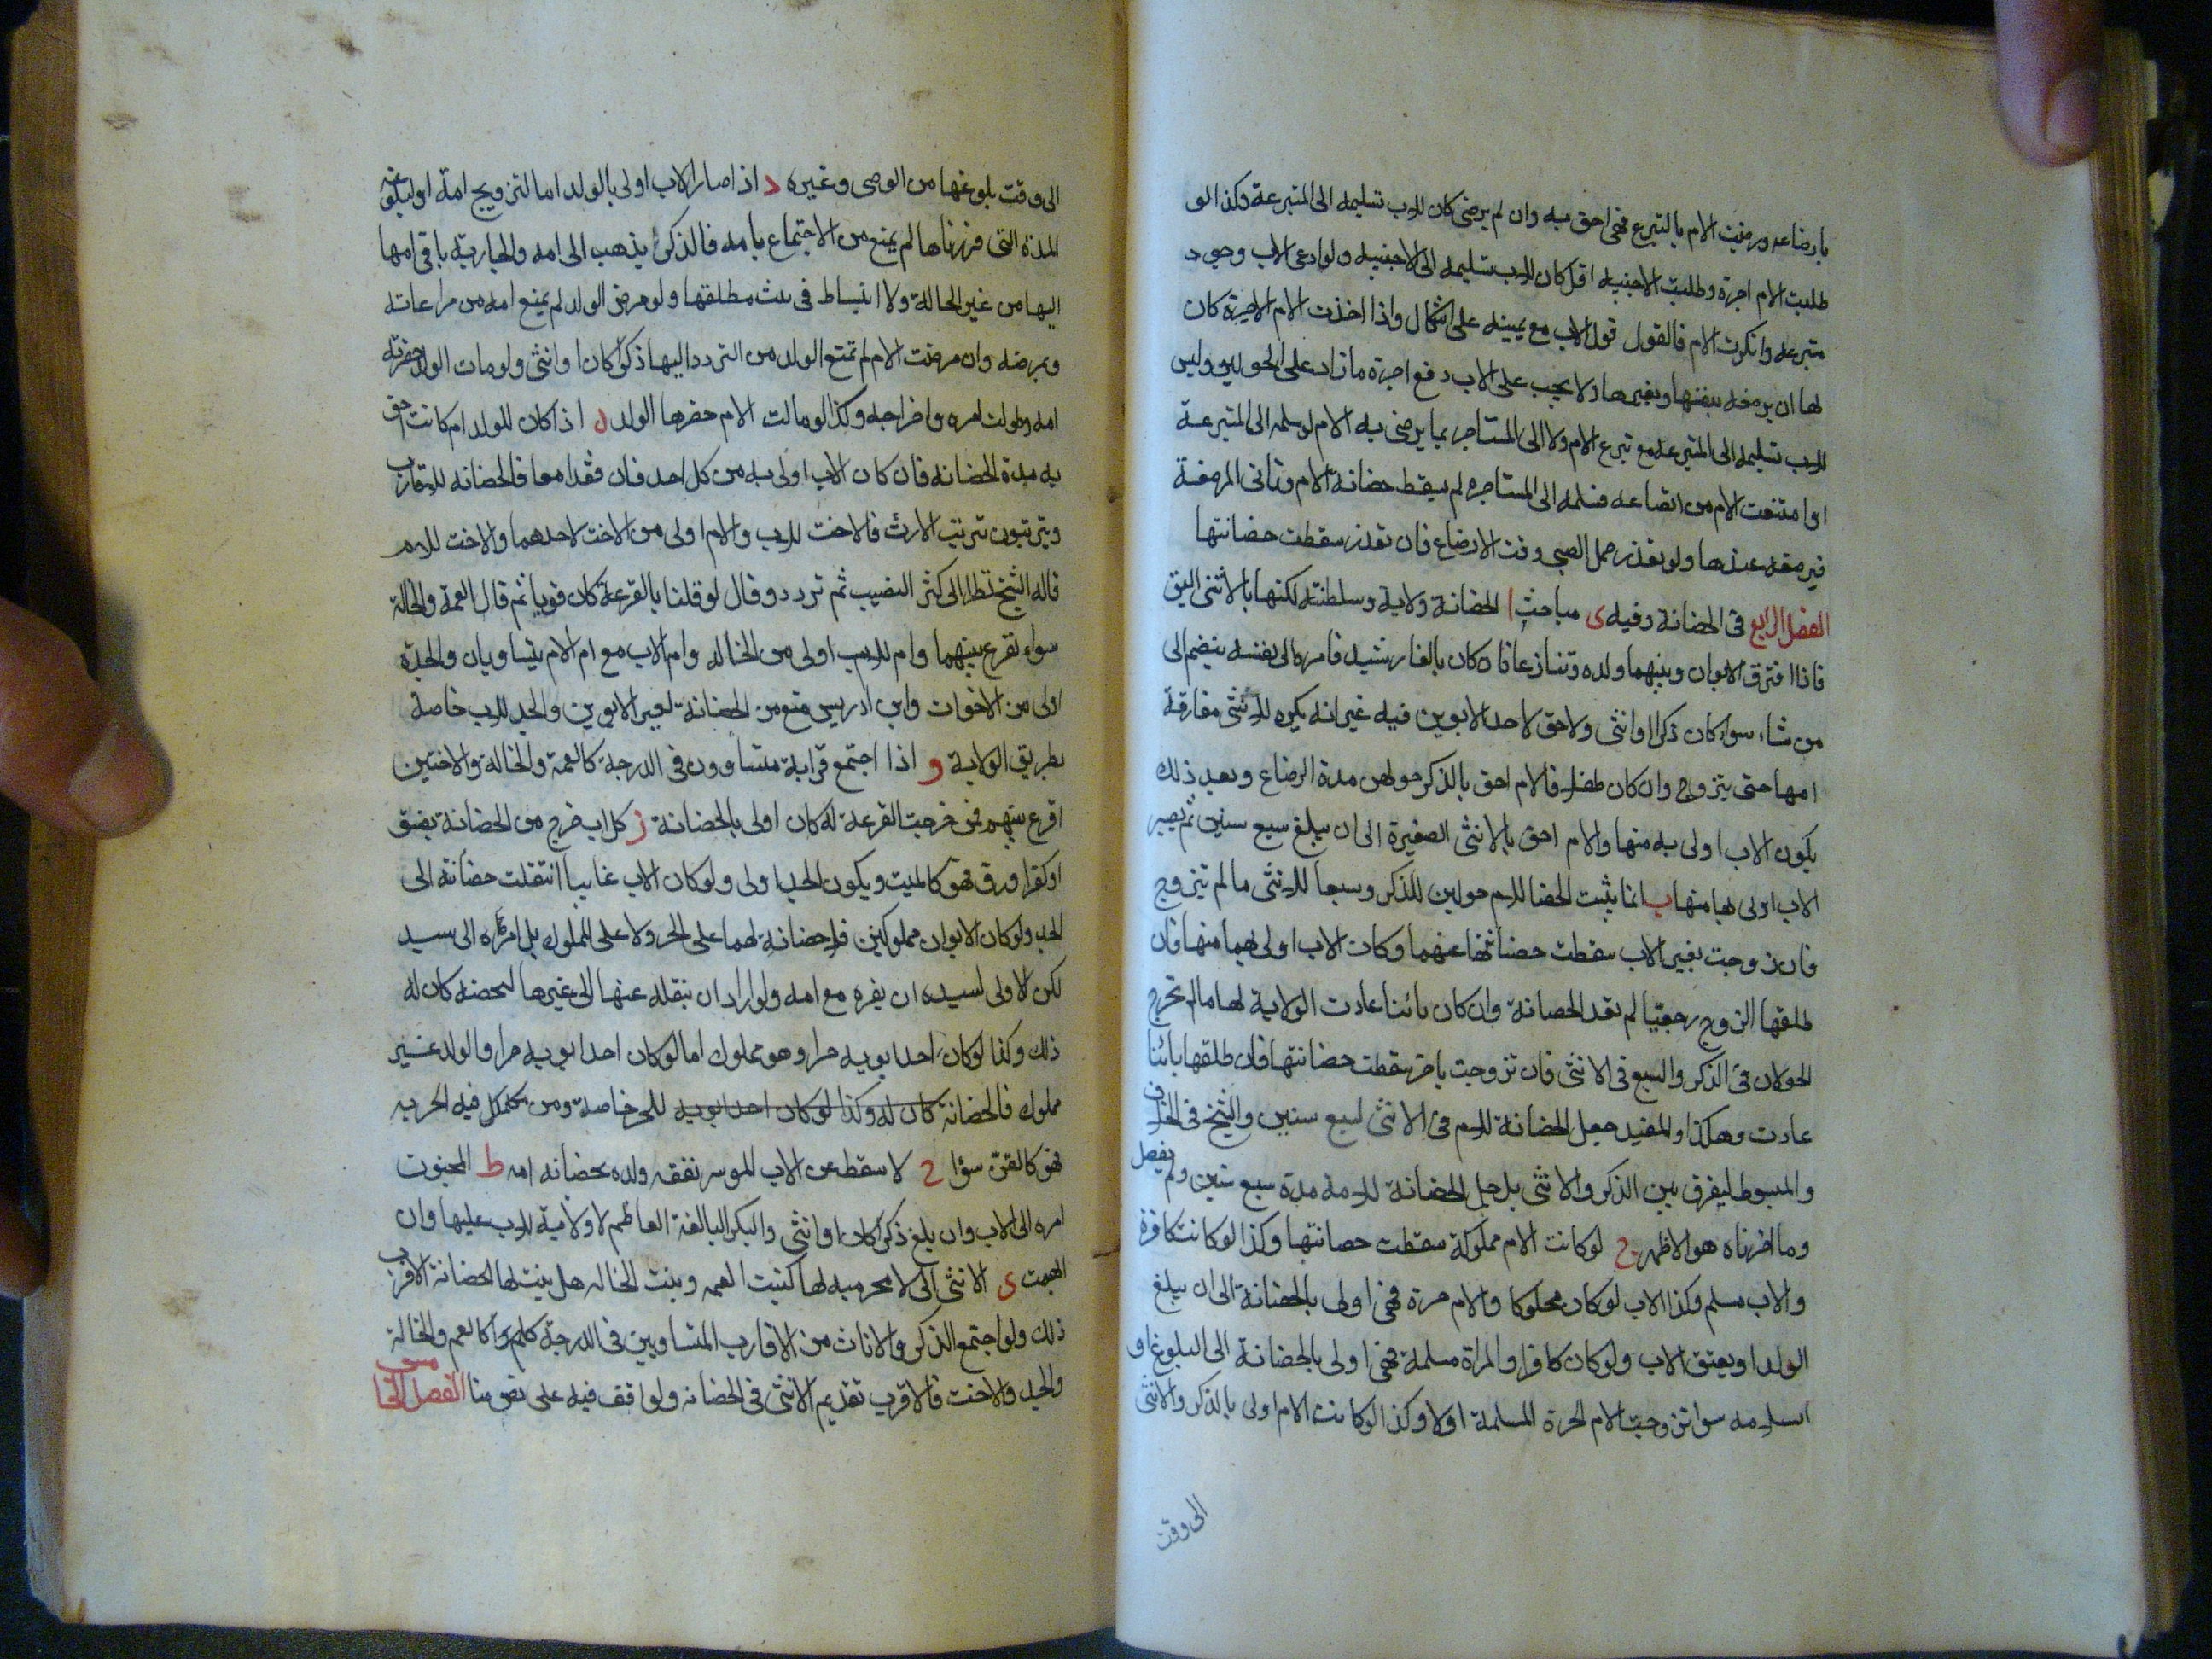 بارضاعه ورضيت الام بالتبرع فهى احق به وان لم يرضى كان للاب تسليمه الى المتبرعة وكذا لو
طلبت الام اجرة وطلبت الاجنبيه اقل كان للاب تسليمه الى الاجنبيه ولو ادعى الاب وجود
متبرعه وانكرت الام فالقول قول الاب مع يمينه على اشكال واذا اخذت الام الاجرة كان
لها ان يرضعه بنفسها وبغيرها ولا يجب على الاب دفع اجرة ما زاد على الحولين وليس
للاب تسليمه الى المتبرعه مع تبرع الام ولا الى المستاجر بما يرضى به الام لو سلمه الى المتبرعة
او امتنعت الام من ارضاعه فسلمه الى المستاجره لم يسقط حضانة الام وتاتى المرضعة
فيرضعه عندها ولو تعذر حمل الصبى وقت الارضاع فان تعذر سقطت حضانتها
الفصل الرابع فى الحضانة وفيه ى مباحث ا الحضانة ولاية وسلطنة لكنها بالانثى اليق
فاذا افترق الابوان وبينهما ولده وتنازعا فان كان بالغا رشيدا فامره الى نفسه ينضم الى
من شاء سواء كان ذكرا او انثى ولا حق لاحد الابوين فيه غير انه يكره للانثى مفارقة
امها حتى يتزوج وان كان طفلا فالام احق بالذكر حولين مدة الرضاع وبعد ذلك
يكون الاب اولى به منها والام احق بالانثى الصغيرة الى ان يبلغ سبع سنين ثم يصير
الاب اولى بها منها ب انما يثبت الحضا للام حولين للذكر وسبعا للانثى ما لم تتزوج
فان زوجت بغير الاب سقطت حضانتها عنهما وكان الاب اولى بهما منها فان
طلقها الزوج رجعيا لم تعد الحضانة وان كان بائنا عادت الولاية لها ما لم تخرج
الحولان فى الذكر والسبع فى الانثى فان تزوجت باخر سقطت حضانتها فان طلقها بائنا
عادت وهكذا والمفيد جعل الحضانة للام فى الانثى لسبع سنين والشيخ فى الخلاف
والمبسوط ليفرق بين الذكر والانثى بل جعل الحضانة للامة مدة سبع سنين ولم يفصل
وما اخرناه هو الاظهر ج لو كانت الام مملوكة سقطت حضانتها وكذا لو كانت كافرة
والاب مسلم وكذا الاب لو كان مملوكا والام حرة فهى اولى بالحضانة الى ان يبلغ
الولد او يعتق الاب ولو كان كافرا والمراة مسلمة فهى اولى بالحضانة الى البلوغ او
اسلامه سوا تزوجت الام الحرة المسلمة اولا وكذا لو كانت الام اولى بالذكر والانثى
الى وقت
الى وقت بلوغها من الوصى وغيره د اذا صار الاب اولى بالولد اما لتزويج امة او لبلوغه
المدة التى قررناها لم يمنع من الاجتماع بامه فالذكر يذهب الى امه والجارية ياتى امها
اليها من غير اطالة ولا انبساط فى بيت مطلقها ولو مرض الولد لم يمنع امه من مراعاته
وتمرضه وان مرضت الام لم تمنع الولد من التردد اليها ذكرا كان او انثى ولو مات الولد حضرته
امه وتولت امره واخراجه وكذا لو ماتت الام حضرها الولد اذا كان للولد ام كانت احق
به مدة الحضانه فان كان الاب اولى به من كل احد فان فقدا معا فالحضانه للاقارب
ويترتبون ترتيب الارث فالاخت للاب والام اولى من الاخت لاحدهما والاخت للام
قاله الشيخ نظرا الى كثر النصيب ثم تردد وقال لو قلنا بالقرعة كان قويا ثم قال العمة والخالة
سواء تقرع بينهما وام للاب اولى من الخاله وام الاب مع ام الام يتساويان والجدة
اولى من الاخوات وابن ادريس منع من الحضانة لغير الابوين والجد للاب خاصة
بطريق الولاية و اذا اجتمع قرابة متساوون فى الدرجة كالعمة والخالة والاختين
اقرع بينهم فمن خرجت القرعة له كان اولى بالحضانة ز كل اب خرج من الحضانة بفسق
او كفر او رق فهو كالميت ويكون الجد اولى ولو كان الاب غايبا انتقلت حضانة الى
الجد ولو كان الابوان مملوكين فلا حضانة لهما على الحر ولا على المملوك بل امره الى سيد
لكن الاولى لسيده ان يقره مع امه ولو اراد ان ينقله عنها الى غيرها لحضنه كان له
ذلك وكذا لو كان احد ابويه حرا وهو مملوك اما لو كان احد ابويه حرا والولد غير
مملوك فالحضانة كان له وكذا لو كان احد ابويه للحر خاصة ومن لم يكمل فيه الحرية
فهو كالقن سواء ح لا سقط عن الاب الموسر نفقه ولده بحضانه امه ط المجنون
امره الى الاب وان بلغ ذكرا كان او انثى والبكر البالغة العاظم لا ولاية للاب عليها وان
اتهمت ى الانثى التى لا محرميه لها كبنت العمه وبنت الخاله هل يثبت لها الحضانة الاقرب
ذلك ولو اجتمع الذكر والاناث من الاقارب المتساويين فى الدرجة كالعم والخالة
والجد والاخت فالاقرب تقديم الانثى فى الحضانه ولو اقف فيه على نص منا الفصل الخامس